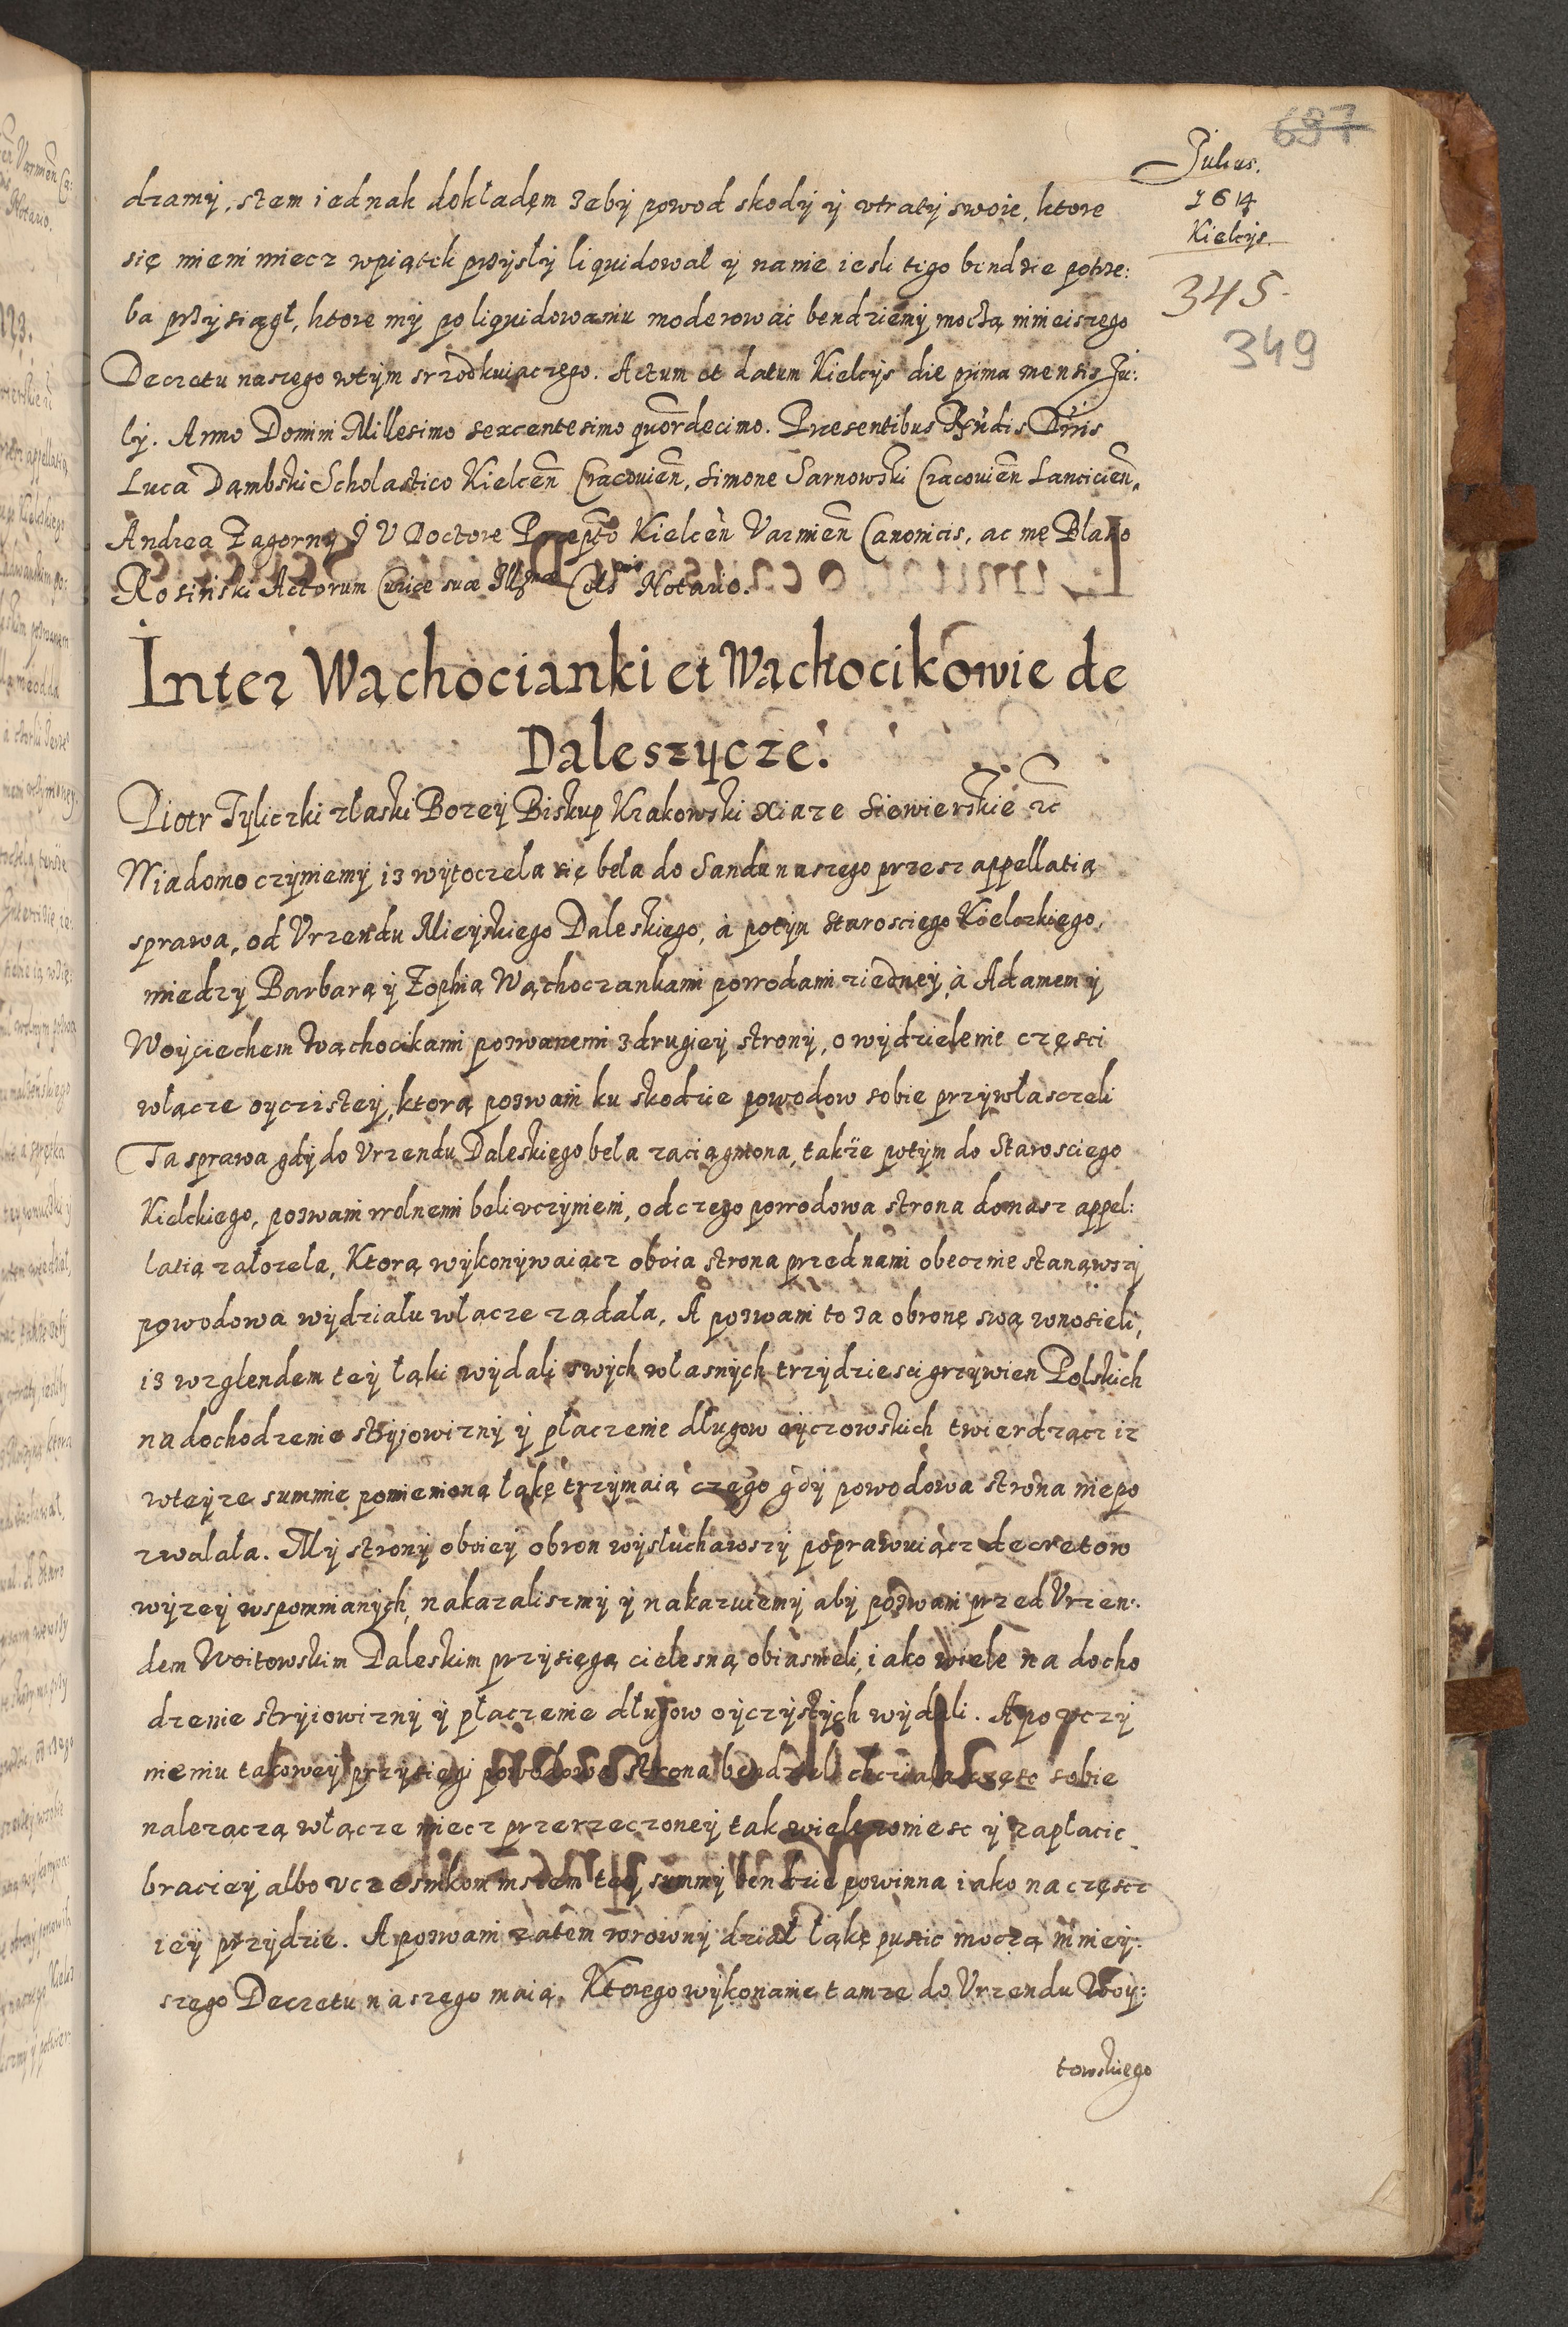 697
Julius.
1614
Kielcys.
345.
349
dzamy, stem iednak dokładęm zeby powod skody y vtraty swoie, ktore
się mieni miecz wpiątek przysły liquidował y na nie iesli tego bendzie potrze:
ba przysiągł, ktore my po liquidowaniu moderować bendziemy moczą ninieiszego
Decretu naszego wtym srzodkuiączego. Actum et datum Kielcys die prima mensis Ju:
ly. Anno Domini Millesimo sexcentesimo quordecimo. Presentibus Rndis Dnis
Luca Dąmbski Scholastico Kielcen Cracouien, Simone Sarnowski Cracouien Lancicien,
Andrea Zagorny J V Doctore Præpto Kielcen Varmien Canonicis, ac me Blasio
Rosiński Actorum Curiæ suæ Illmæ Cels Notario.
Inter Wąchocianki et Wąchocikowie de
Daleszycze.
Piotr Tyliczki złaski Bozey Biskup Krakowski Xiaze Siewierskie &c
Wiadomo czyniemy iz wytoczela się beła do Sandu naszego przesz appellatią
sprawa, od Vrzendu Mieyskiego Daleskiego, à potym Starosciego Kielczkiego,
miedzy Barbarą y Zophią Wąchoczankami powodami ziedney, à Adamem y
Woyciechem Wąchocikami pozwanemi z drugiey strony, o wydzielenie częsci
włącze oyczistey, ktorą pozwani ku skodzie powodow sobie przywłasczeli
Ta sprawa gdy do Vrzendu Daleskiego beła zaciągniona, takze potym do Starosciego
Kielckiego, pozwani wolnemi beli vczynieni, od czego powodowa strona do nasz appel:
latią załozela, Ktorą wykonywaiącz oboia strona przed nami obecznie stanąwszy
powodowa wydziału włącze ządała, A pozwani to za obronę swą wnosieli,
iz wzglendem tey łąki wydali swych własnych trzydziesci grzywien Polskich
na dochodzenie stryjowizny y płaczenie długow oyczowskich twierdzącz iz
wteyze summie pomienioną łąkę trzymaią czego gdy powodowa strona niepo
zwalała. My strony oboiey obron wysłuchawszy poprawuiącz decretow
wyzey wspomnianych, nakazalismy y nakazuiemy aby pozwani przed Vrzen:
dem Woitowskim Daleskim przysięgą cielesną obiasnieli, iako wiele na docho
dzenie stryiowizny y płaczenie długow oyczystych wydali. A po vczy
nieniu takowey przysięgi powodowa strona bendzeli chcziała częsc sobie
nalezączą włącze miecz przerzeczoney tak wiele zniesc y zapłacic
braciey albo vczesnikom inszem tey summy bendzie powinna iako na częscz
iey przydzie. A pozwani zatem wrowny dział łąkę puscic moczą niniey:
szego Decretu naszego maią. Ktorego wykonanie tamze do Vrzendu Woy:
towskiego